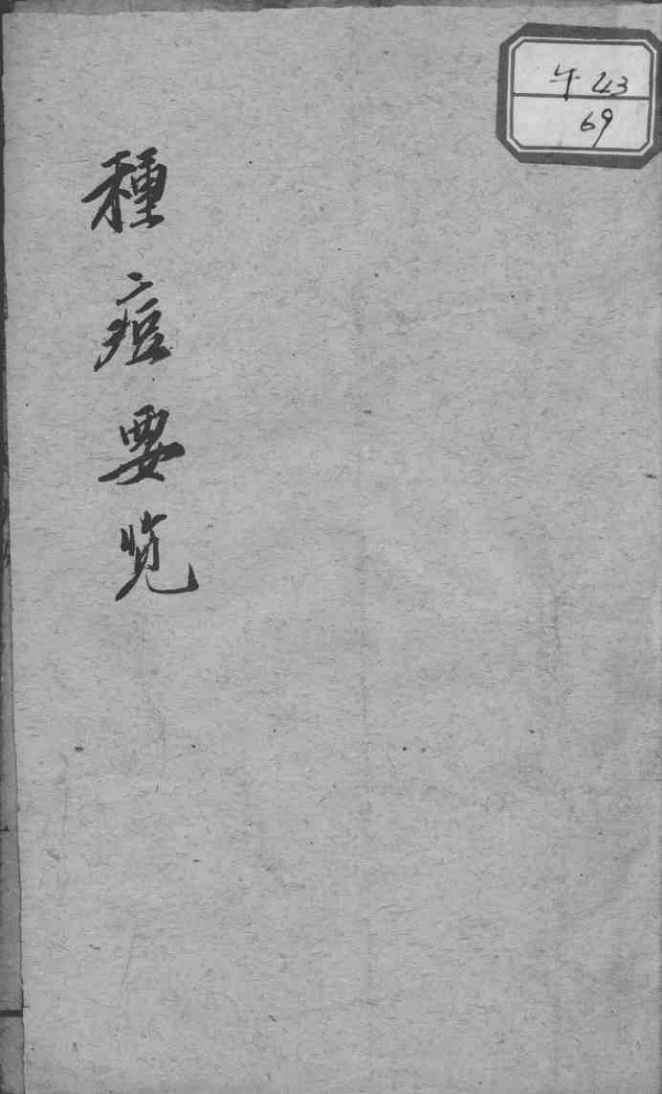 種痘要览
午 43
69